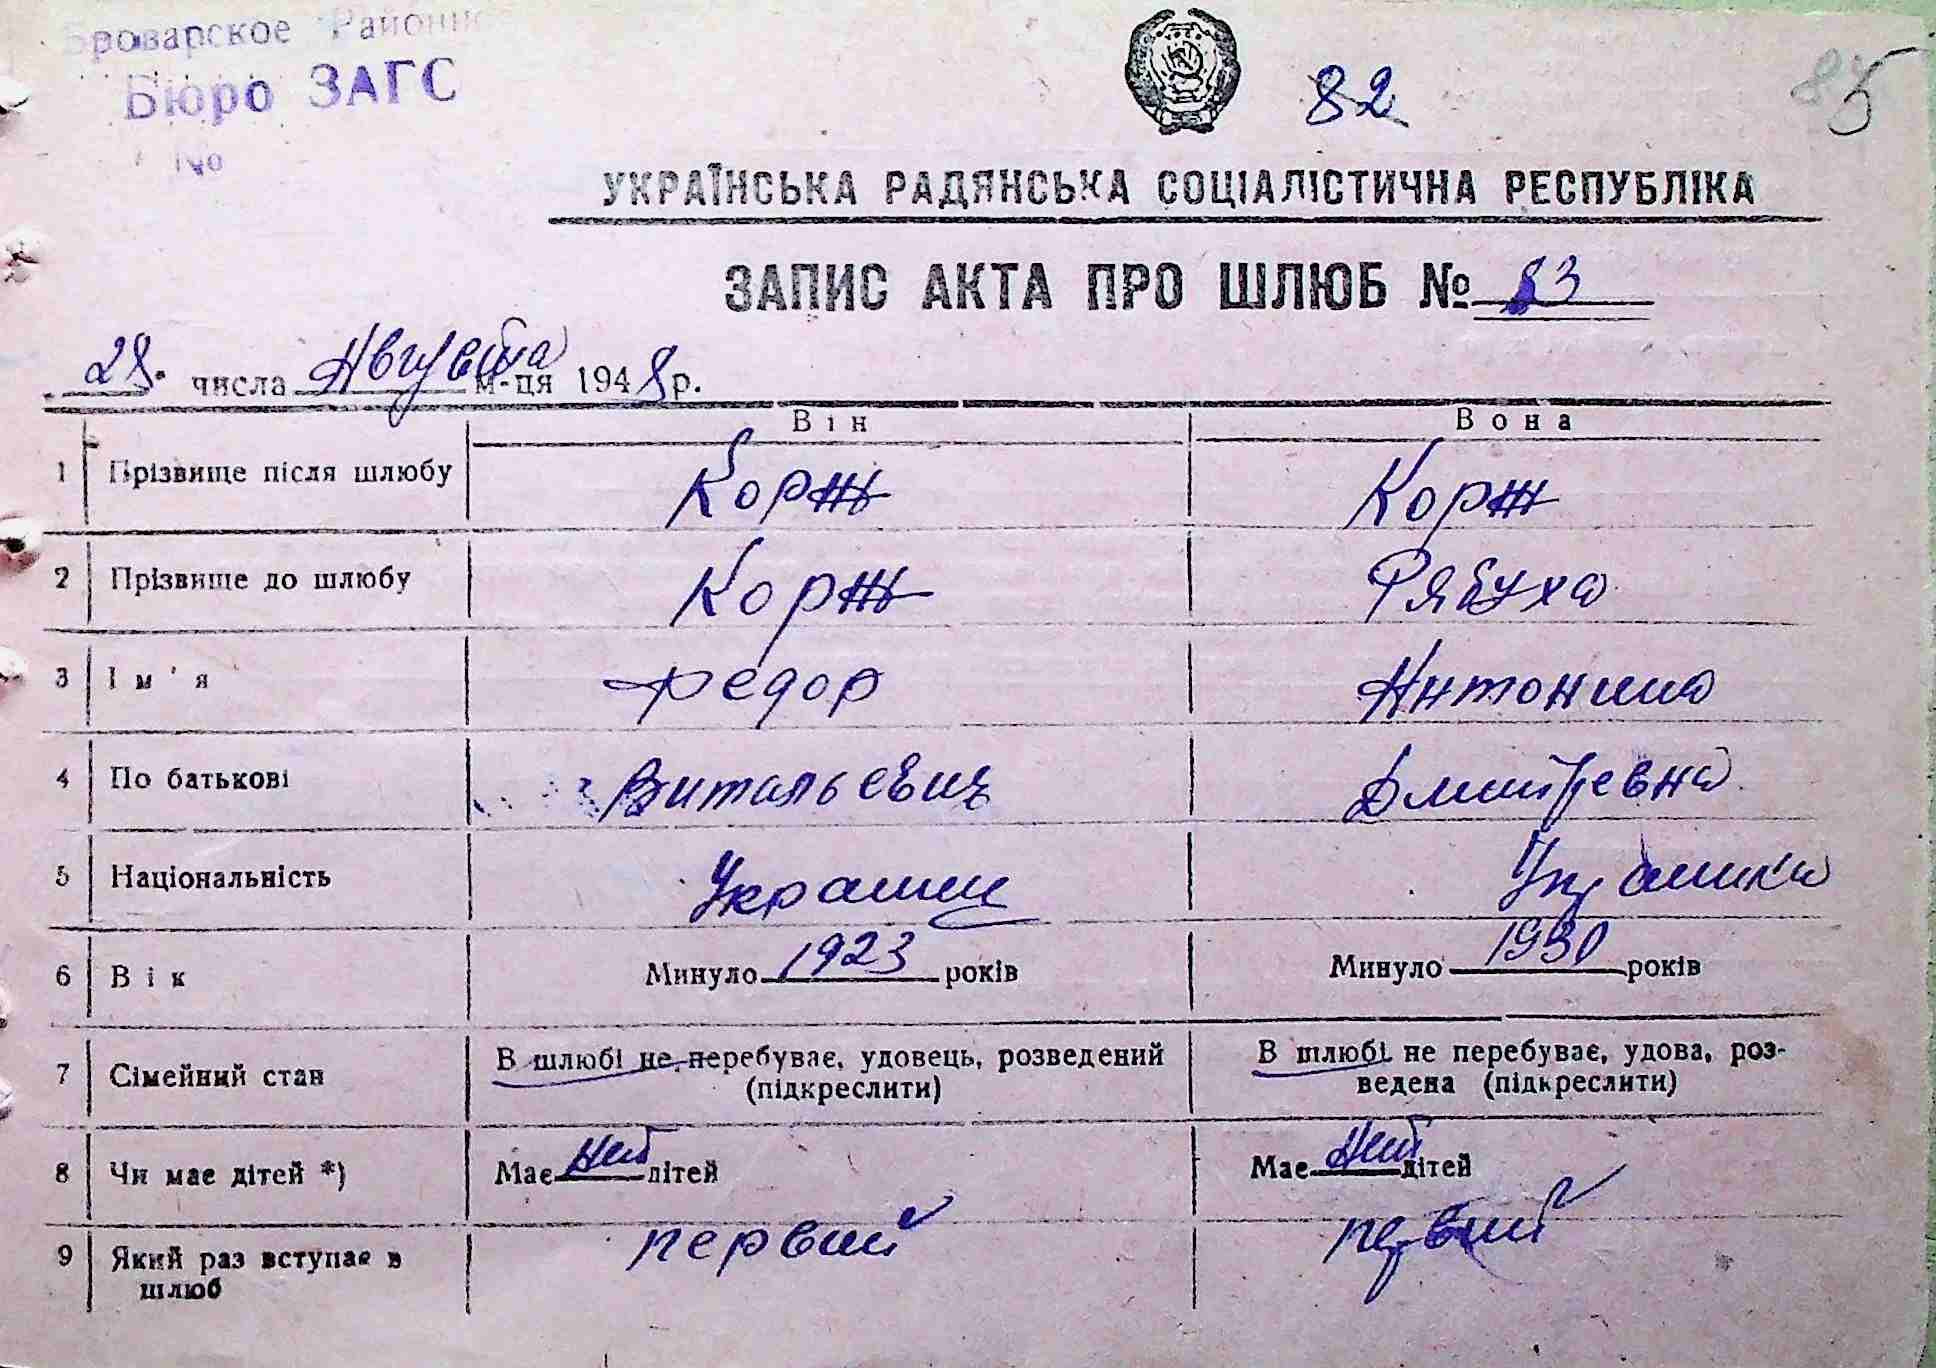 Броварское Районн
Бюро ЗАГС
No
82
85
УКРАЇНСЬКА РАДЯНСЬКА СОЦІАЛІСТИЧНА РЕСПУБЛІКА
ЗАПИС АКТА ПРО ШЛЮБ № 83
28. числа Августа м-ця 1948 р.
Він Вона
1 Прізвище після шлюбу Коржъ Корж
2 Прізвище до шлюбу Коржъ Рябуха
3 Ім'я Федор Антонина
4 По батькові Витальевич Дмитревна
5 Національність Украинец Украинка
6 Вік Минуло 1923 років Минуло 1930 років
7 Сімейний стан В шлюбі не перебуває, удовець, розведений (підкреслити) В шлюбі не перебуває, удова, роз-
ведена (підкреслити)
8 Чи має дітей *) Має нет дітей Має нет дітей
9 Який раз вступає в шлюб первий первий